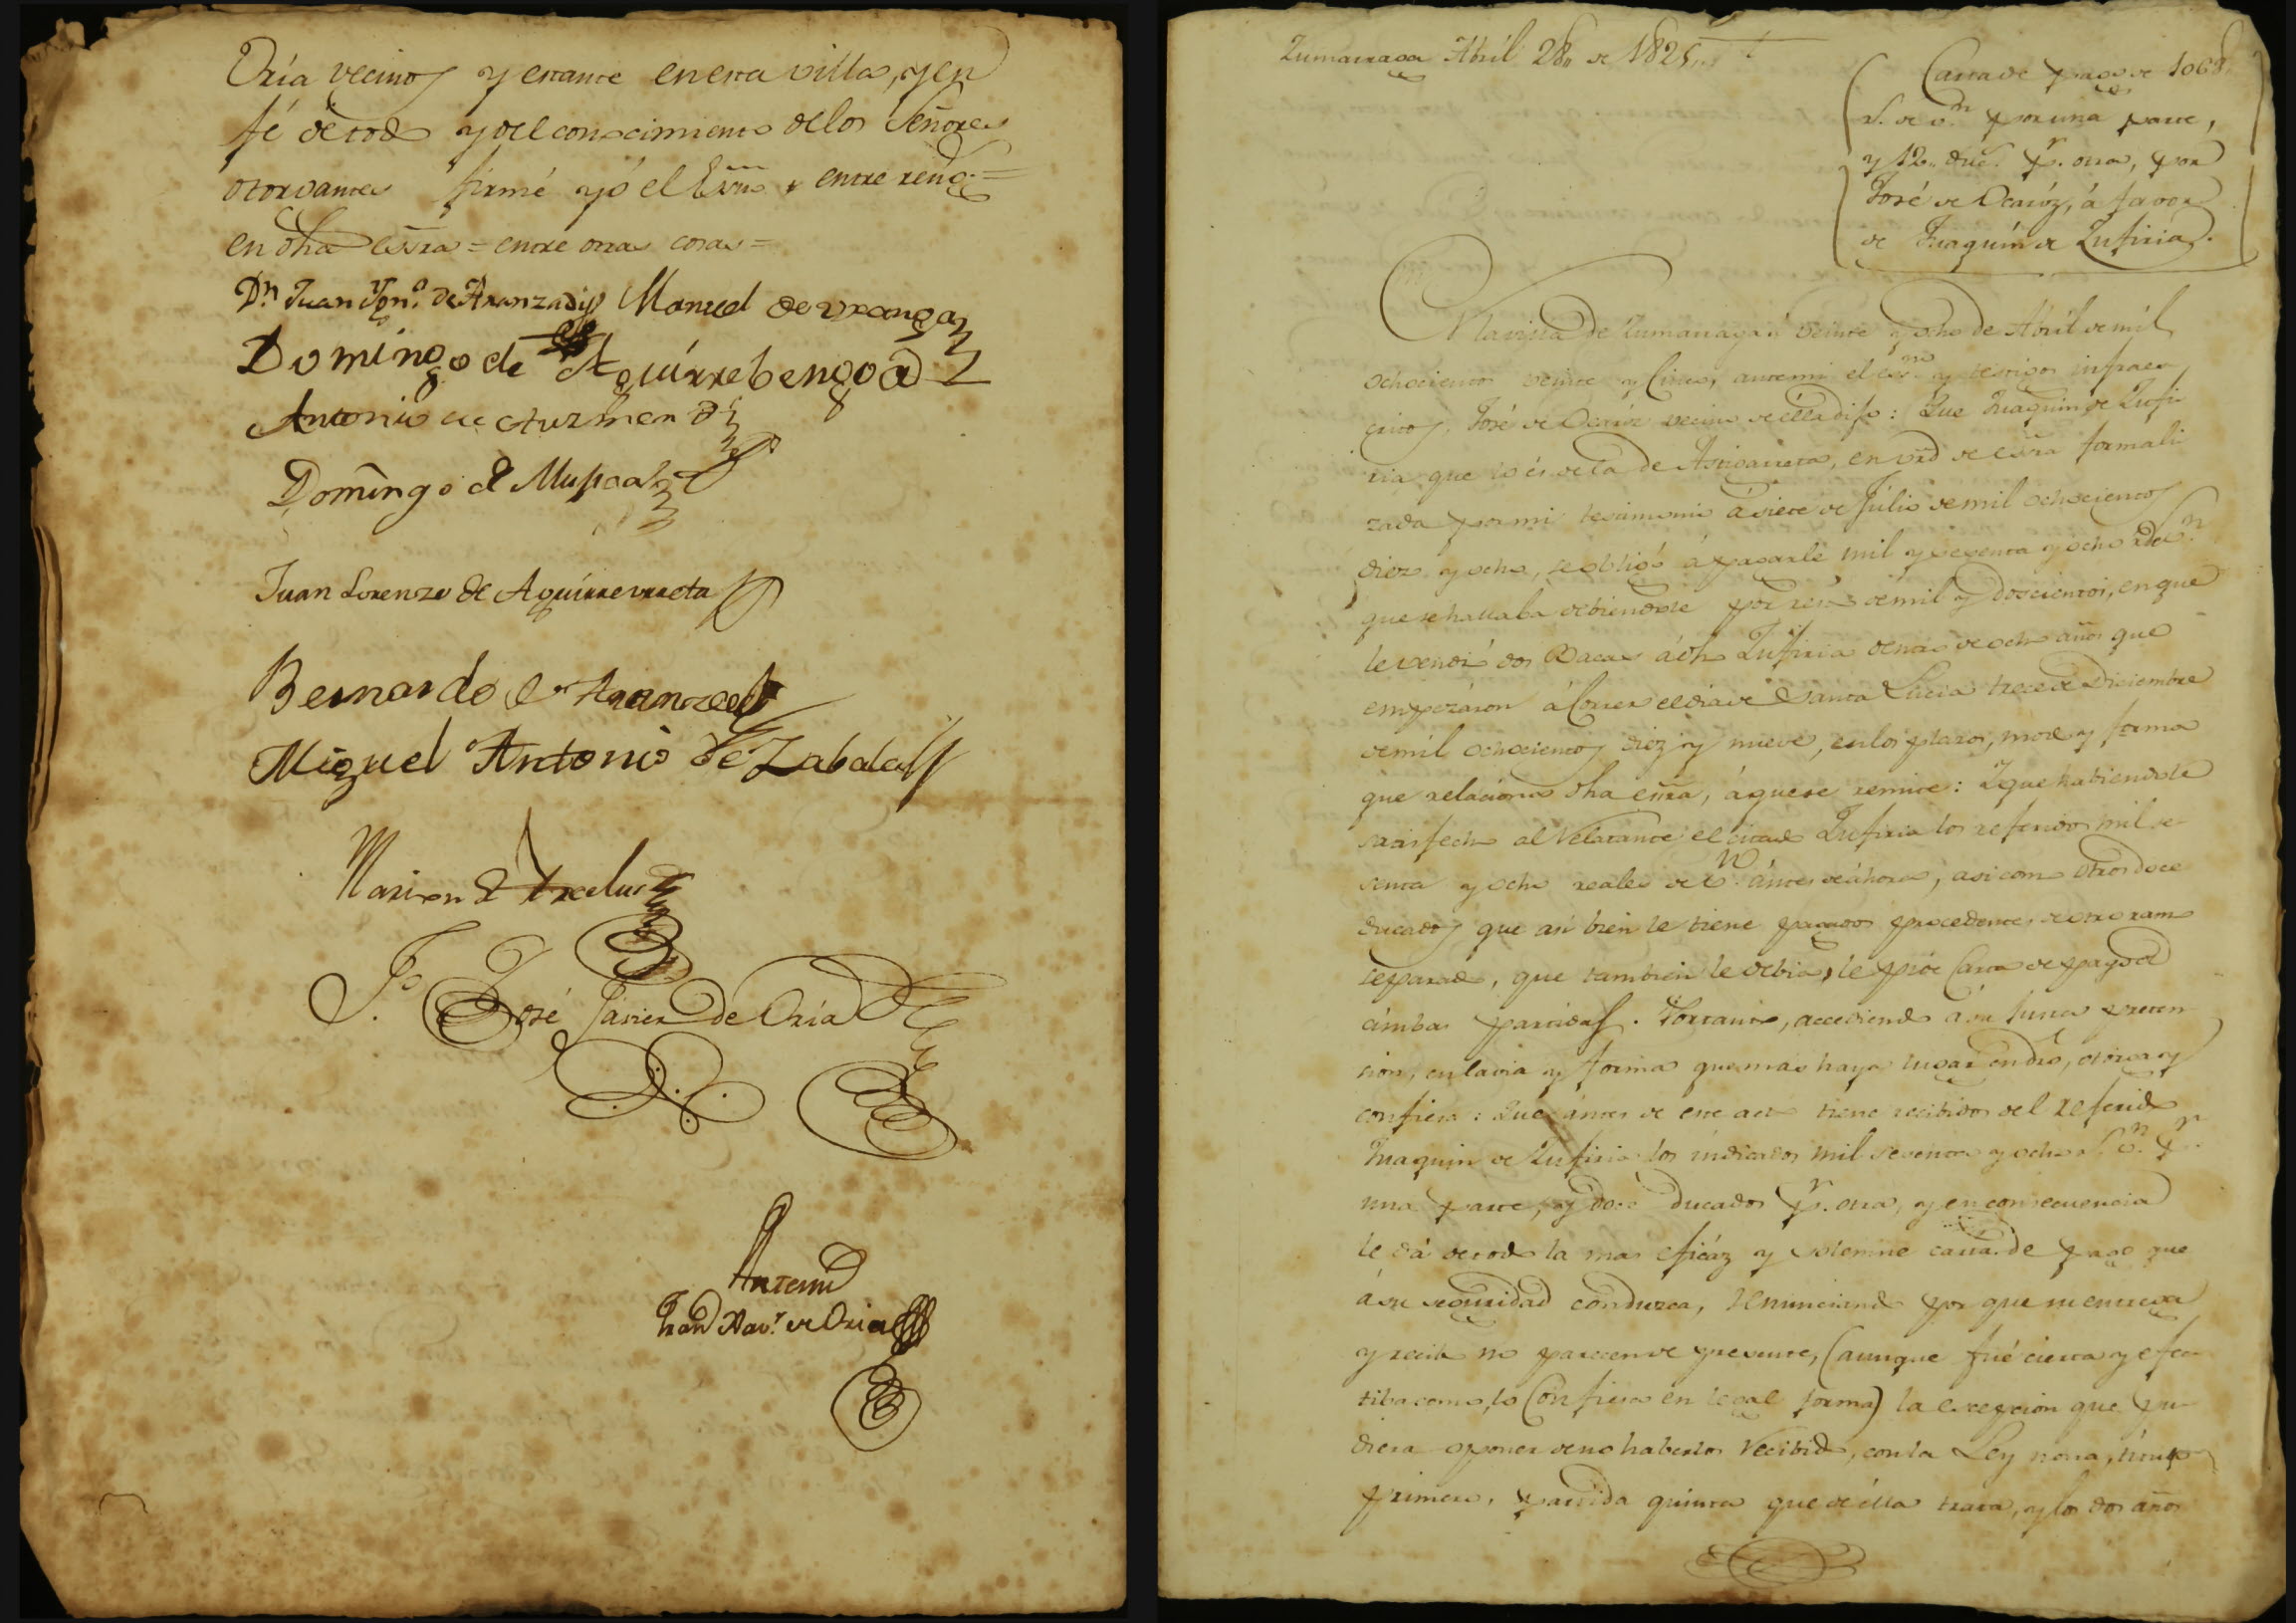 Oria vecinos y estante en esta villa, y en
fé de todo y del conocimiento de los Señores
otorgantes firmé yó el Essno = entre rengs. =
en dha essra = entre otras cosas =
Dn. Juan Ygno. de Aranzadi Manuel de Uranga
Domingo de Aguirrebengoa
Antonio de Auzmendi
Domingo de Mujica
Juan Lorenzo de Aguirreurreta
Bernardo de Aranzadi
Miguel Antonio de Zabala
José Javier de Oria
Antemi
Franco Xavr. de Oria
Zumarraga Abril 28,, de 1825,,
Carta de pago de 1068,,
rs. de vn. por una parte,
y 12,, ducs. pr. otra, por
José de Ocaróz, á favor
de Juaquin de Zufiria.
En la villa de Zumarraga á veinte y ocho de Abril de mil
ochocientos veinte y Cinco, ante mi el esno. y testigos infraes
critos, José de Ocaróz vecino de élla dijo: Que Juaquin de Zufi
ria que lo és de la de Astigarreta, en vrd. de essra formali
zada por mi testimonio á siete de Julio de mil ochocientos
diez y ocho, se obligó á pagarle mil y sesenta y ocho rs. de vn.
que se hallaba debiendole por resto de mil y doscientos, en que
le vendió dos Bacas á dho Zufiria dentro de ocho años que
empezáron á Correr el dia de Santa Lucia trece de Diciembre
de mil ochocientos diez y nueve, en los plazos, modo y forma
que relaciona dha essra, á que se remite: Y que habiendole
satisfecho al Relatante el citado Zufiria los referidos mil se-
senta y ocho reales de vn. ántes de áhora, asi como otros doce
ducados que asi bien le tiene pagados procedentes de otro ramo
separado, que tambien le debia, le pide Carta de pago de
ámbas partidas. Por tanto, accediendo á su justa preten
sion, en la via y forma que mas haya lugar en dro, otorga y
confiesa: Que ántes de este acto tiene recibidos del referido
Juaquin de Zufiria los indicados mil sesenta y ocho rs. vn. pr.
una parte, y doce ducados pr. otra, y en consecuencia
le dá de todo la mas eficáz y solemne carta de pago que
á su seguridad conduzca, renunciando por que su entrega
y recibo no parecen de presente, (aunque fué cierta y efec
tiba como lo Confiesa en legal forma) la escepcion que pu-
diera oponer de no haberlos Recibido, con la Ley nona, titulo
primero, partida quinta que de élla trata, y los dos años